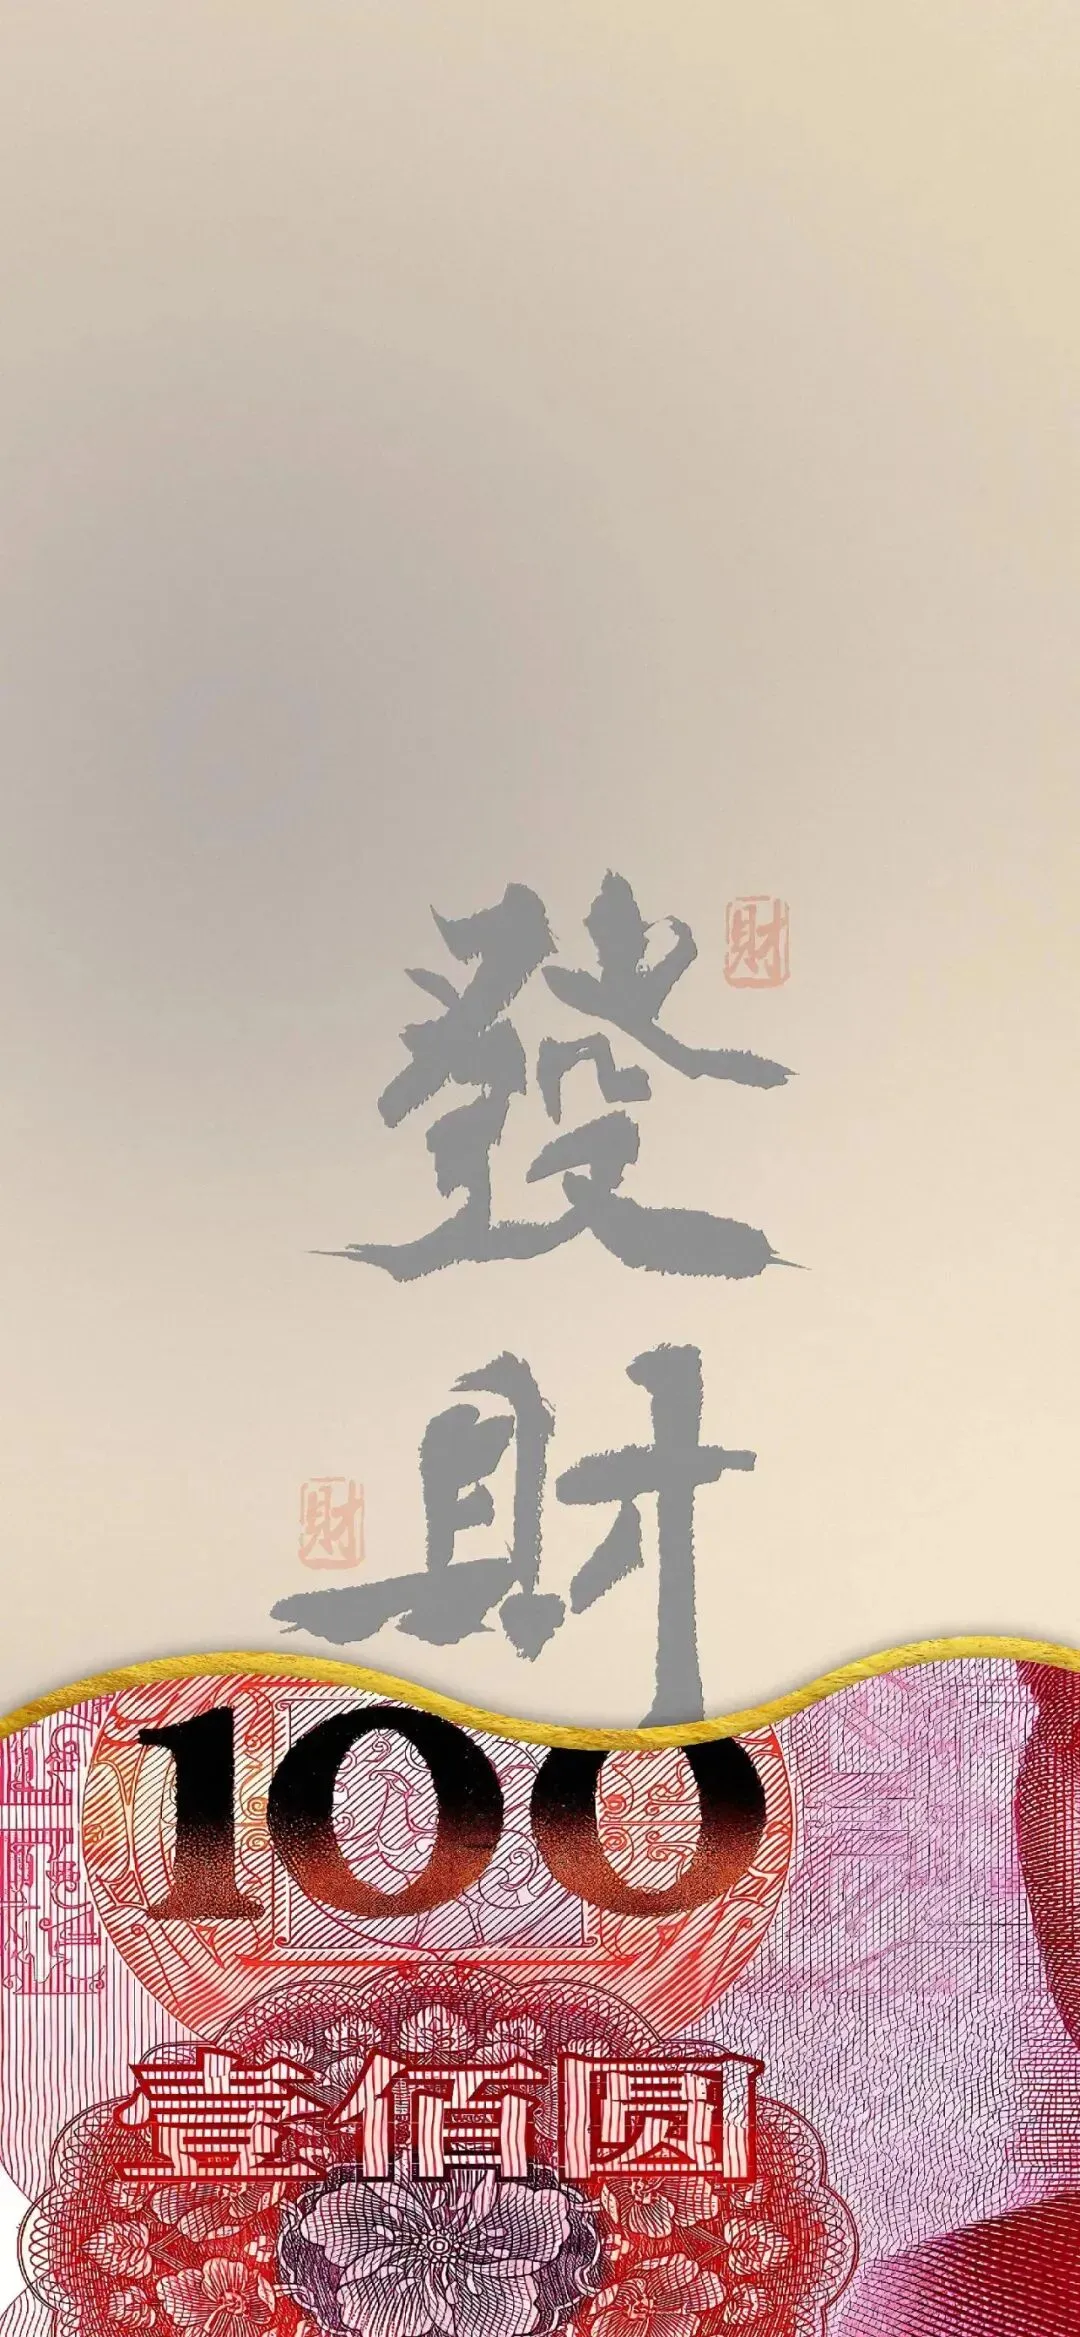 發
財
財
財
100
壹佰圆